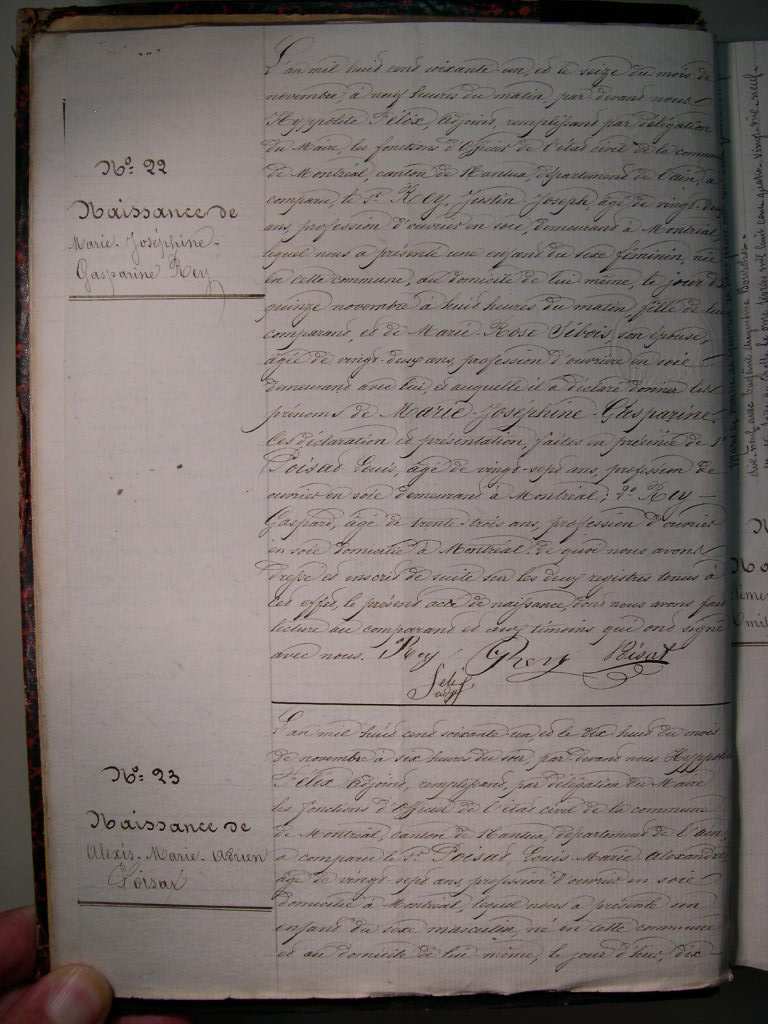 N.º 22
Naissance de
Marie-Joséphine-
Gasparine Rey
L'an mil huit cent soixante-un, et le seize du mois de
novembre, à neuf heures du matin par devant nous
Hyppolite Félix, adjoint, remplissant par délégation
du Maire, les fonctions d'officier de l'état civil de la commune
de Montréal, canton de Nantua, département de l'ain, a
comparu, le Sr. Rey, Justin Joseph, âgé de vingt-
ans, profession d'ouvrier en soie, demeurant à Montréal
lequel nous a présenté une enfant du sexe féminin, née
en cette commune, au domicile de lui même, le jour de
quinze novembre à huit heures du matin, fille de lui
comparant, et de Marie-Rose Sibois, son épouse,
âgée de vingt-deux ans, profession d'ouvrière en soie
demeurant avec lui, et auquelle il a déclaré donner les
prénoms de Marie-Joséphine-Gasparine.
Ces déclaration et présentation, faites en présence de 1º
Poisat Louis, âgé de vingt-sept ans, profession de
ouvrier en soie demeurant à Montréal; 2º Rey
Gaspard, âgé de trente-trois ans, profession d'ouvrier
en soie domicilié à Montréal. de quoi nous avons
dressé et inscrit de suite sur les deux registres tenus à
cet effet, le présent acte de naissance, dont nous avons fait
lecture au comparant et aux témoins qui ont signé
avec nous. Rey GRey Poisat
Felix
adj
N.º 23
Naissance de
Alexis-Marie-Adrien
Poisat
L'an mil huit cent soixante un et le dix huit du mois
de novembre à six heures du soir, par devant nous Hyppolite
Félix adjoint, remplissant, par délégation du Maire
les fonctions d'officier de l'état civil de la commune
de Montréal, canton de Nantua, département de l'ain,
a comparu le Sr. Poisat Louis Marie Alexandre
âgé de vingt-sept ans, profession d'ouvrier en soie
domicilié à Montréal, lequel nous a présenté un
enfant du sexe masculin, né en cette commune
et au domicile de lui même, le jour d'hier, dix-